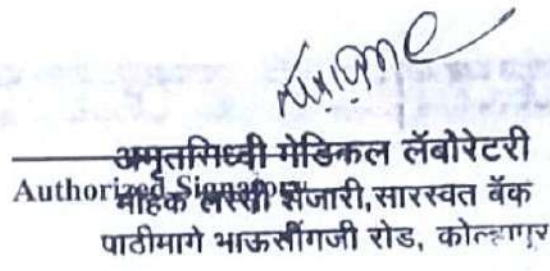 अमृतसिध्वी मेडिकल लॅबोरेटरी
Authorized Signatory
मोहक लस्सी शेजारी,सारस्वत बँक
पाठीमागे भाऊसींगजी रोड, कोल्हापूर